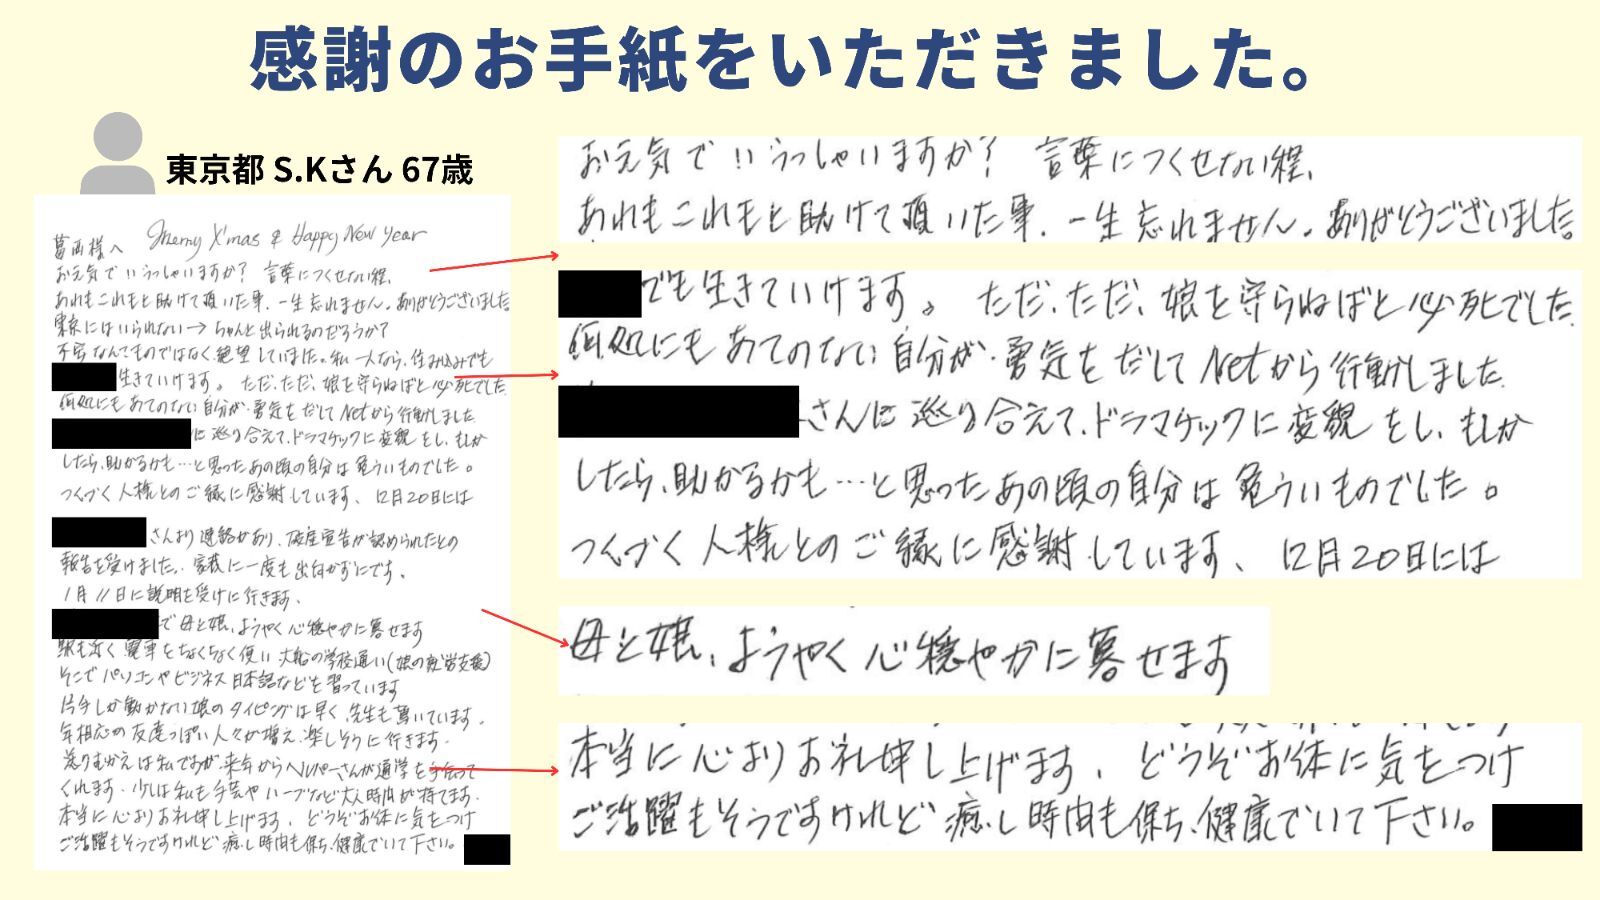 感謝のお手紙をいただきました。
東京都 S.Kさん 67歳
Merry X'mas & Happy New Year
葛西様へ
お元気でいらっしゃいますか? 言葉につくせない程、
あれもこれもと助けて頂いた事、一生忘れません。ありがとうございました
東京にはいられない→ちゃんと出られるのだろうか?
不安なんてものではなく絶望していました。私一人なら、住み込みでも
生きていけます。ただ、ただ、娘を守らねばと必死でした
何処にもあてのない自分が、勇気をだしてNetから行動しました
に巡り合えて、ドラマチックに変貌をし、もしか
したら、助かるかも…と思ったあの頃の自分は危ういものでした。
つくづく人様とのご縁に感謝しています、12月20日には
さんより連絡があり、破産宣告が認められたとの
報告を受けました。審議に一度も出向かずにです。
1月11日に説明を受けに行きます、
で母と娘、ようやく心穏やかに暮せます
駅も近く電車をちょくちょく使い大船の学校通い(娘の就労支援)
そこでパソコンやビジネス日本語などを習っています
片手しか動かない娘のタイピングは早く、先生も驚いています。
年相応の友達っぽい人々が増え、楽しそうに行きます。
送りむかえは私ですが、来年からヘルパーさんが通学を手伝って
くれます。少しは私も手芸やハーブなど大人時間が持てます。
本当に心よりお礼申し上げます、どうぞお体に気をつけ
ご活躍もそうですけれど癒し時間も保ち、健康でいて下さい。
お元気でいらっしゃいますか? 言葉につくせない程、
あれもこれもと助けて頂いた事、一生忘れません。ありがとうございました
でも生きていけます。ただ、ただ、娘を守らねばと必死でした
何処にもあてのない自分が、勇気をだしてNetから行動しました
さんに巡り合えて、ドラマチックに変貌をし、もしか
したら、助かるかも…と思ったあの頃の自分は危ういものでした。
つくづく人様とのご縁に感謝しています、12月20日には
母と娘、ようやく心穏やかに暮せます
本当に心よりお礼申し上げます、どうぞお体に気をつけ
ご活躍もそうですけれど癒し時間も保ち、健康でいて下さい。